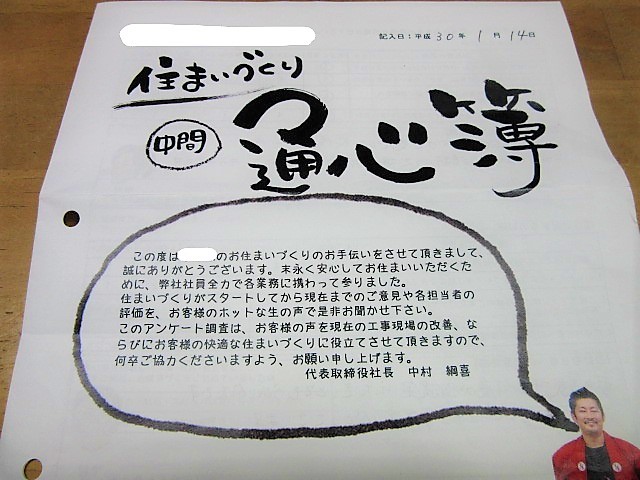 記入日:平成 30 年 1 月 14 日
住まいづくり
中間
通心簿
この度は のお住まいづくりのお手伝いをさせて頂きまして、
誠にありがとうございます。末永く安心してお住まいいただくた
めに、弊社社員全力で各業務に携わって参りました。
住まいづくりがスタートしてから現在までのご意見や各担当者の
評価を、お客様のホットな生の声で是非お聞かせ下さい。
このアンケート調査は、お客様の声を現在の工事現場の改善、な
らびにお客様の快適な住まいづくりに役立てさせて頂きますので、
何卒ご協力くださいますよう、お願い申し上げます。
代表取締役社長 中村 綱喜